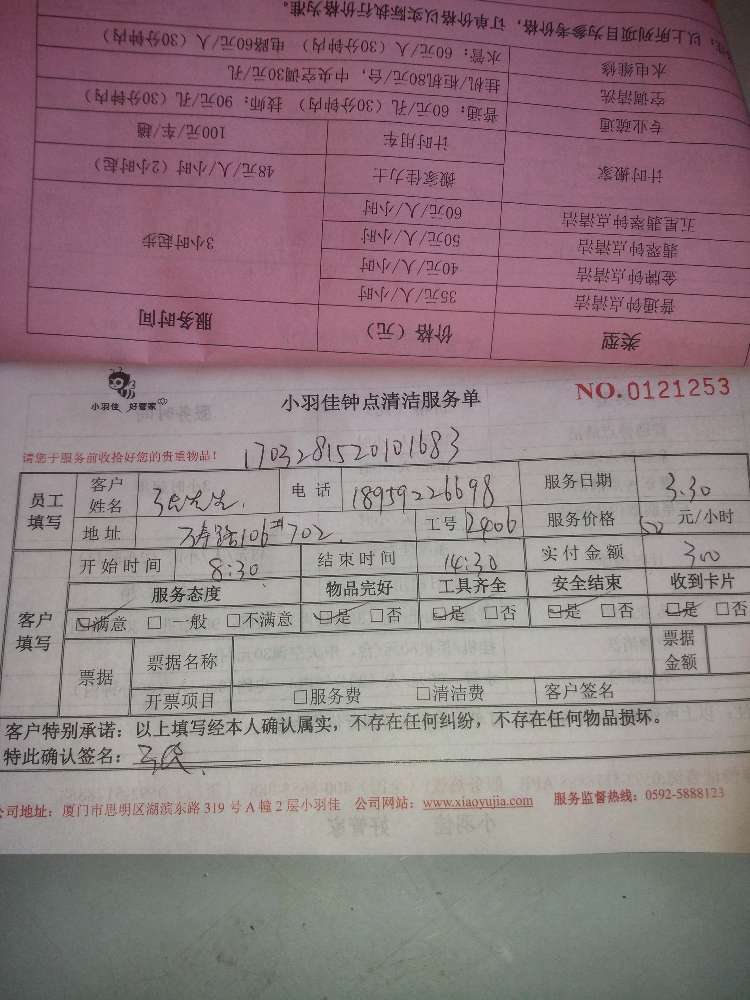 注：以上所列项目为参考价格，订单价格以实际执行价格为准。
水电维修 水管：60元/人（30分钟内） 电路60元/人（30分钟内）
空调清洗 挂机/柜机80元/台，中央空调30元/孔
专业疏通 普通：60元/孔（30分钟内） 技师：90元/孔（30分钟内）
计时搬家 计时用车 100元/车/趟
搬家佳力士 48元/人/小时（2小时起）
五星翡翠钟点清洁 60元/人/小时
翡翠钟点清洁 50元/人/小时 3小时起步
金牌钟点清洁 40元/人/小时
普通钟点清洁 35元/人/小时
类型 价格（元） 服务时间
小羽佳 好管家
小羽佳钟点清洁服务单
NO.0121253
请您于服务前收拾好您的贵重物品！
1703281520101683
员工填写 客户姓名 先生 电话 18959226698 服务日期 3.30
地址 万寿路106#702 工号 2406 服务价格 50 元/小时
客户填写 开始时间 8:30 结束时间 14:30 实付金额 300
服务态度 物品完好 工具齐全 安全结束 收到卡片
☑满意 □一般 □不满意 ☑是 □否 ☑是 □否 ☑是 □否 ☑是 □否
票据 票据名称 票据金额
开票项目 □服务费 □清洁费 客户签名
客户特别承诺：以上填写经本人确认属实，不存在任何纠纷，不存在任何物品损坏。
特此确认签名：
公司地址：厦门市思明区湖滨东路 319 号 A 幢 2 层小羽佳 公司网站：www.xiaoyujia.com 服务监督热线：0592-5888123